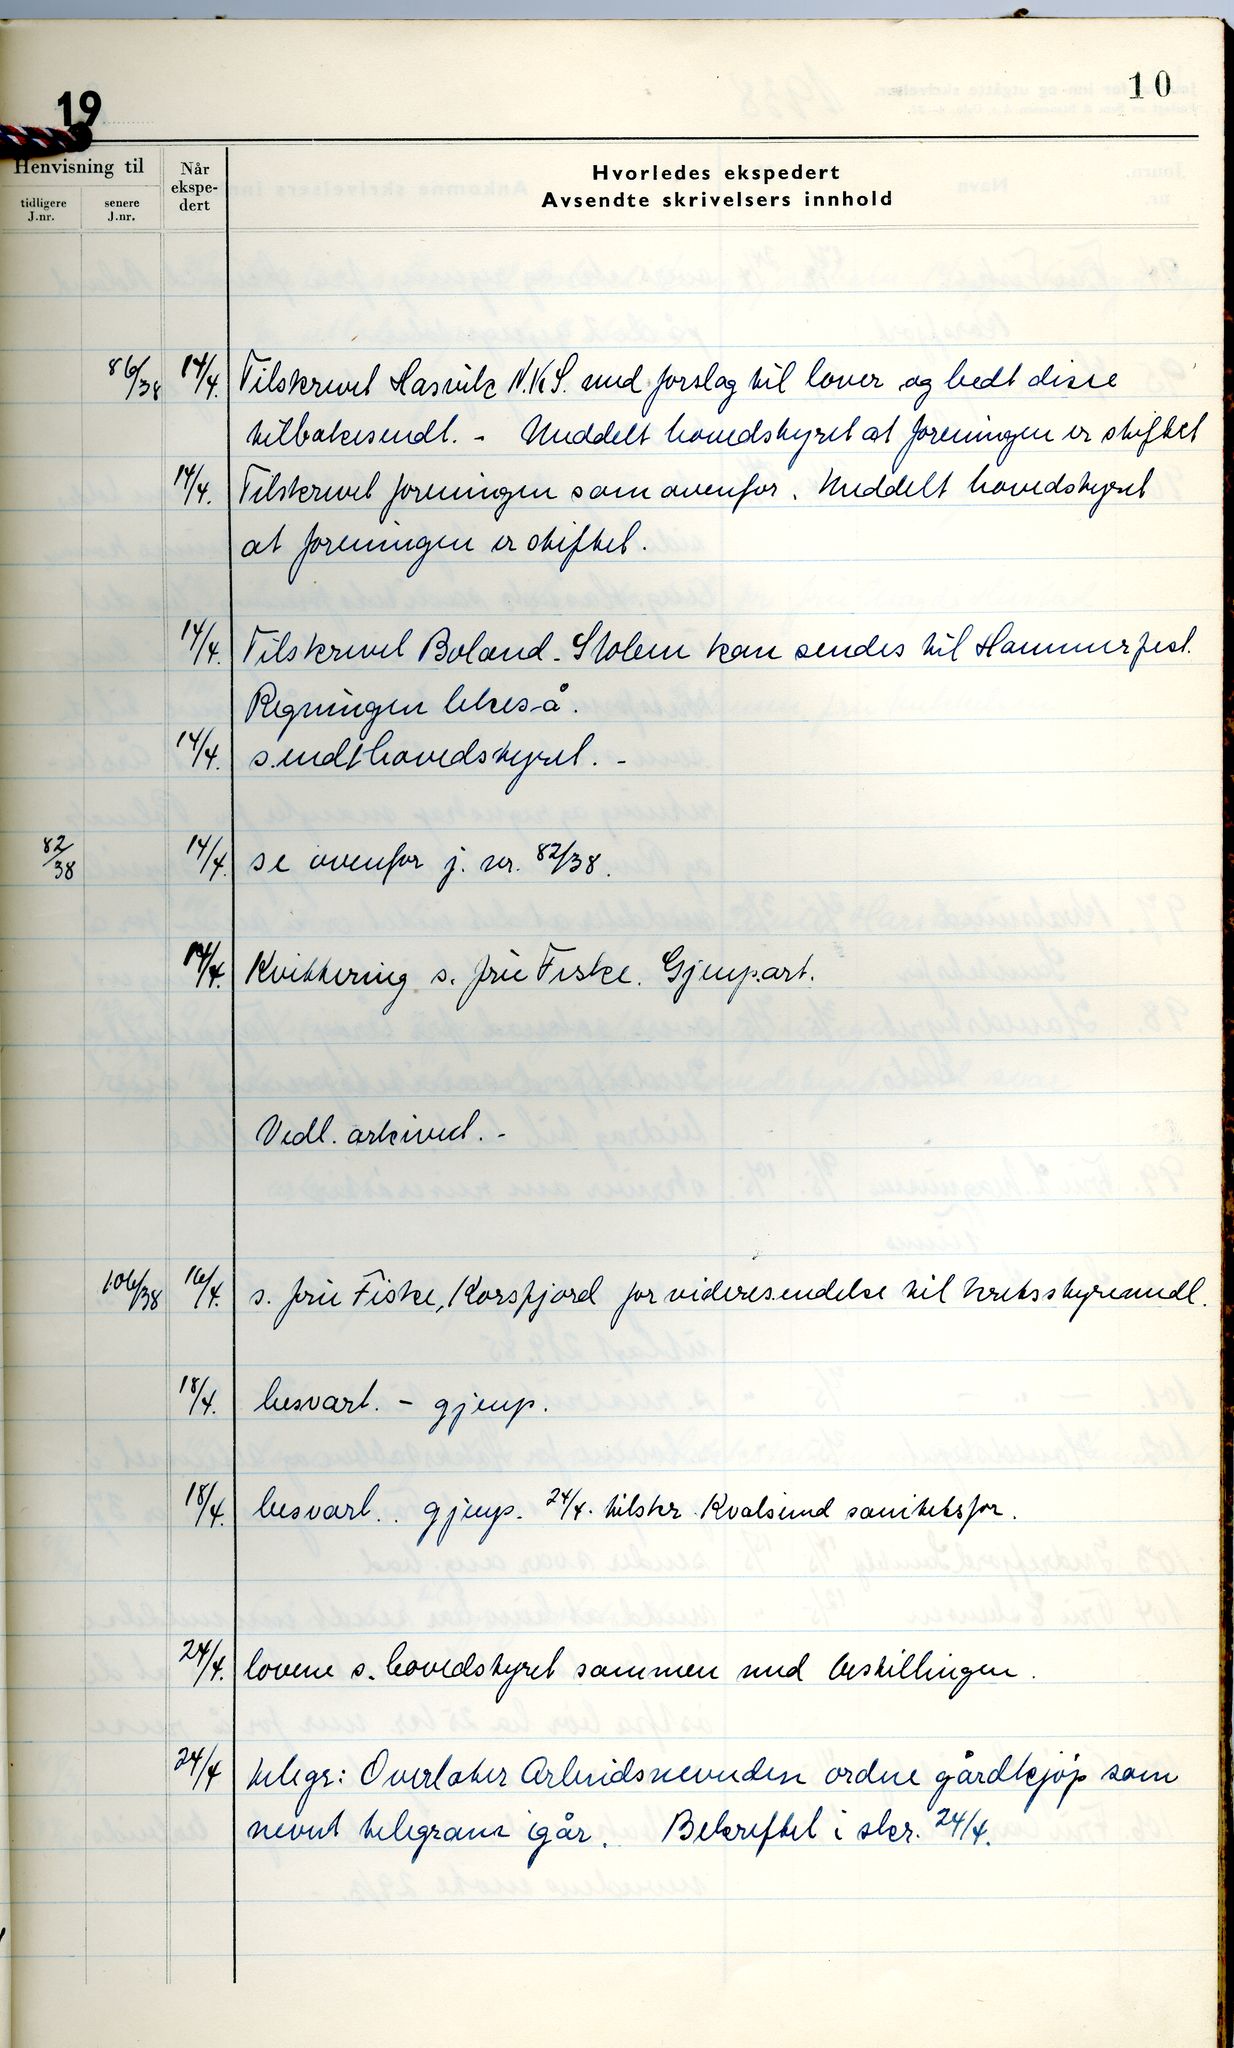 10
19
Henvisning til
tidligere J.nr.
senere J.nr.
Når ekspe- dert
Hvorledes ekspedert
Avsendte skrivelsers innhold
86/38 14/4. Tilskrevet Hasvik N.K.S. med forslag til lover og bedt disse
tilbakesendt. - Meddelt hovedstyret at foreningen er stiftet
14/4. Tilskrevet foreningen som ovenfor. Meddelt hovedstyret
at foreningen er stiftet.
14/4. Tilskrevet Boland. Stolen kan sendes til Hammerfest.
Regningen likeså.
14/4. sendt hovedstyret. -
82/38 14/4. se ovenfor j. nr. 82/38.
14/4. Kvittering s. fru Fiske. Gjenpart.
Vedl. arkivert. -
106/38 16/4. s. fru Fiske, Korsfjord for videresendelse til kretsstyremedl.
18/4. besvart. - gjenp.
18/4. besvart. . gjenp. 24/4. tilskr. Kvalsund sanitetsfor.
24/4. lovene s. hovedstyret sammen med bestillingen.
24/4 telegr: Overlater Arbeidsnevnden ordne gårdkjøp som
nevnt telegram igår. Bekreftet i skr. 24/4.